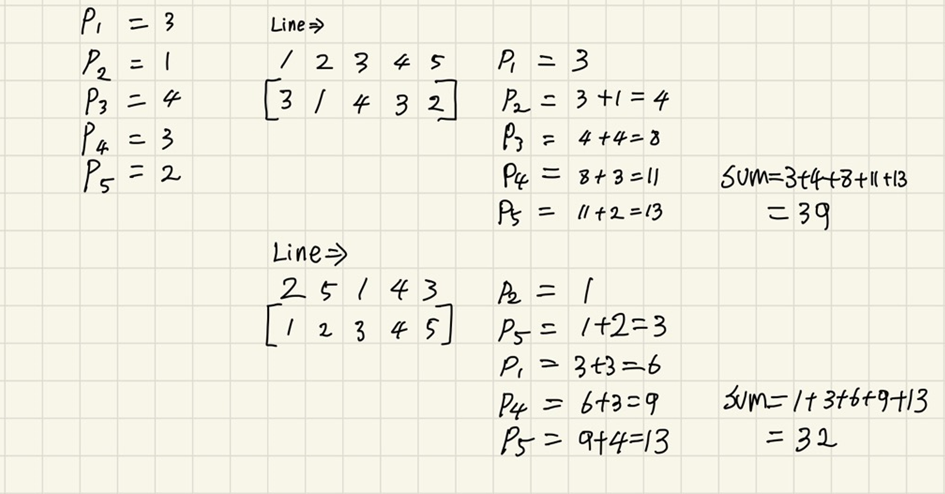 P₁ = 3
P₂ = 1
P₃ = 4
P₄ = 3
P₅ = 2
Line⇒
1 2 3 4 5
[3 1 4 3 2]
P₁ = 3
P₂ = 3+1=4
P₃ = 4+4=8
P₄ = 8+3=11
P₅ = 11+2=13
sum=3+4+8+11+13
=39
Line⇒
2 5 1 4 3
[1 2 3 4 5]
P₂ = 1
P₅ = 1+2=3
P₁ = 3+3=6
P₄ = 6+3=9
P₅ = 9+4=13
sum=1+3+6+9+13
=32